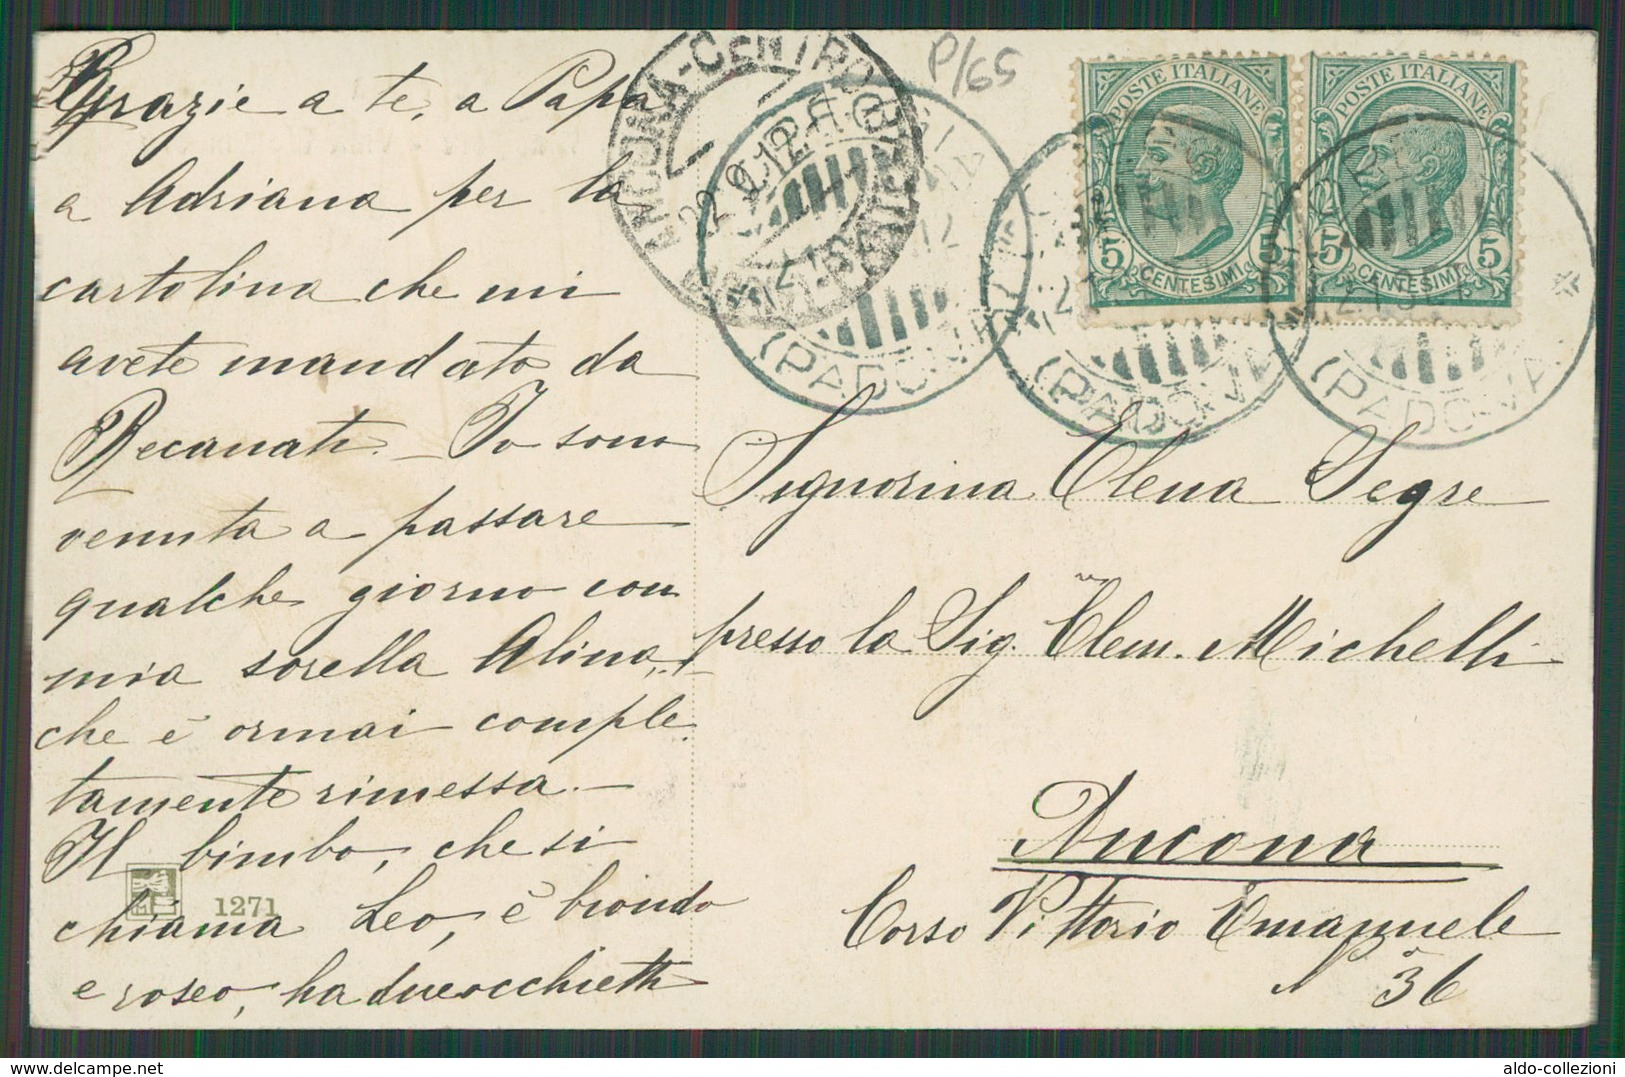 Grazie a te, a Papà
a Adriana per la
cartolina che mi
avete mandato da
Recanati. - Io sono
venuta a passare
qualche giorno con
mia sorella Alina,
che è ormai comple
tamente rimessa. -
Il bimbo, che si
chiama Leo, è biondo
e roseo, ha due occhietti
1271
P/65
ANCONA-CENTRO
22.9.12
POSTE ITALIANE
5 CENTESIMI 5
POSTE ITALIANE
5 CENTESIMI 5
(PADOVA)
(PADOVA)
(PADOVA)
Signorina Elena Segre
presso la Sig. Clem. Michelli
Ancona
Corso Vittorio Emanuele
N° 36
aldo-collezioni